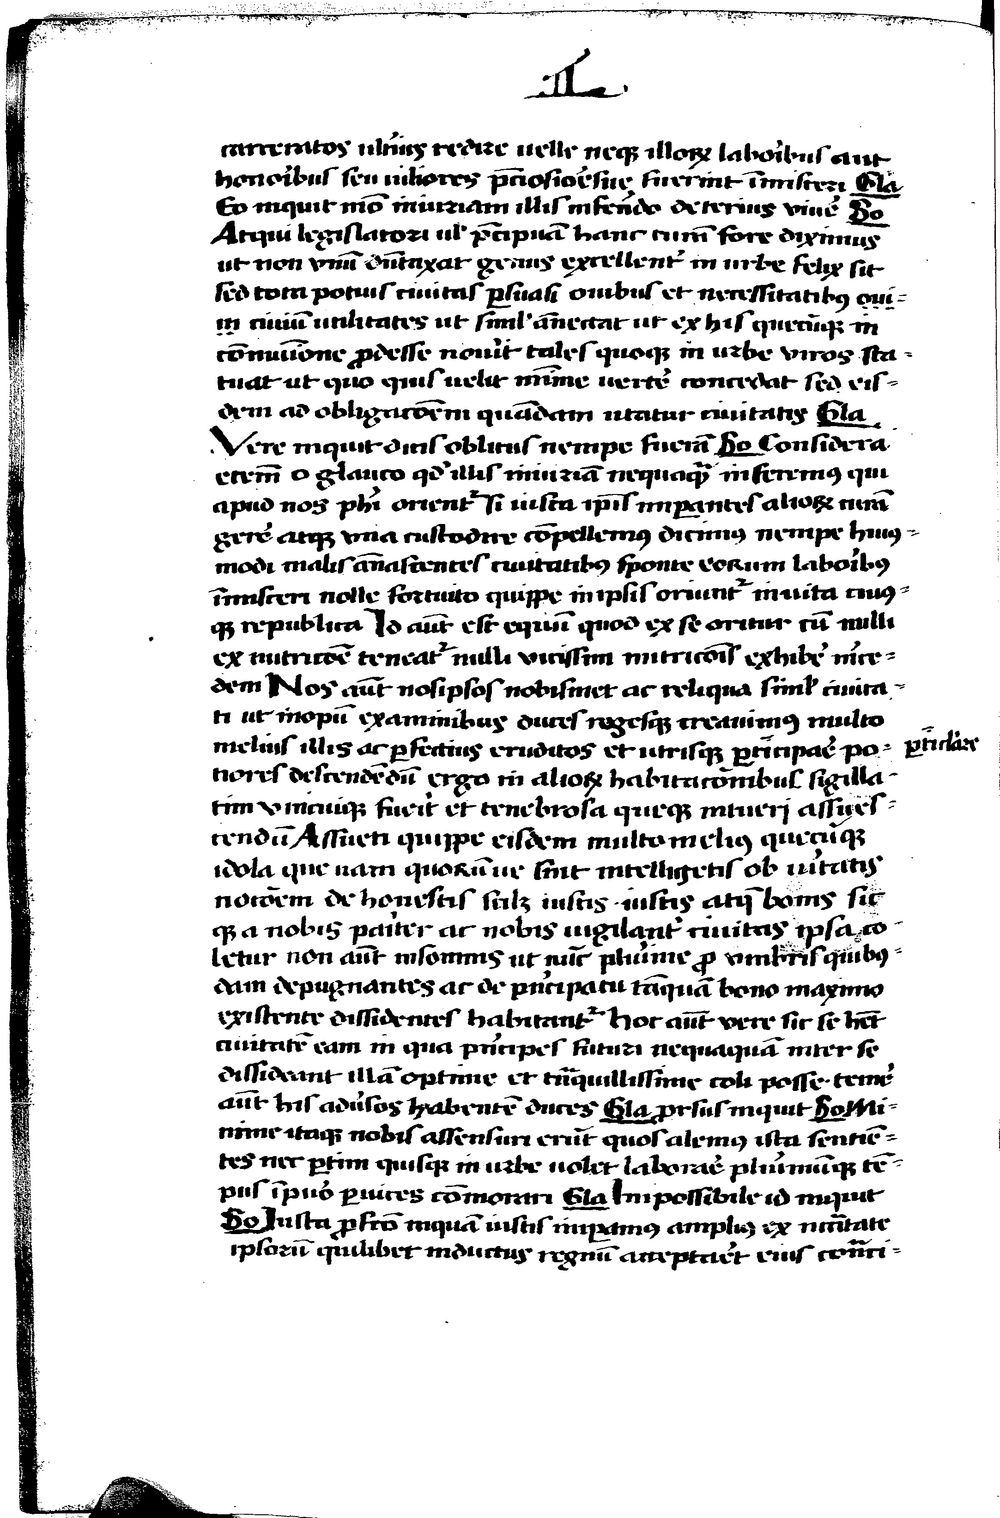 .II.
carceratos ult̉ius redire uelle neq̨ illoꝝ laborib̉us aut
honorib̉us seu uiliores p̄ciosiores̉ue fuerint īmisceri Gla
Eo inquit mō iniuriam illis inferēdo deterius viuē So
Atqui legislatori ul̉ p̄cipuā hanc curā fore diximus
ut non vnū dūtaxat genus excellent̉ in urbe felix sit
sed tota potius ciuitas ꝑsuasi onibus et necessitatibꝯ oui=
m ciuiū utilitates ut simł añectat ut ex his quecūq̨ in
cōmuīone ꝓdesse nouit̉ tales quoq̨ in urbe viros sta=
tuat ut quo quis uelit mīme uertẻ concedat sed eis=
dem ad obligacōem quādam utatur ciuitatis Gla
Vere inquit dicis oblitus nempe fuerā So Considera
etem̄ o glauco qd̉ illis iniuriā nequaq̄ inferemꝯ qui
apud nos phī orient̉ si iusta ip̄is imꝑantes alioꝝ curā
gerẻ atq̨ vna custodire cōpellemꝯ dicimꝯ nempe huiꝯ=
modi malis añascentes ciuitatibꝯ sponte eorum laborib̉ꝯ
īmisceri nolle fortuito quippe in ipsis oriunt̉ inuita ciuꝯ=
q̨ republica Id aūt est equū quod ex se oritur cū nulli
ex nutricōe teneat̉ nulli vicissim nutricōis exhibẻ m̉ce=
dem Nos aūt nosipsos nobismet ac reliqua simł ciuita=
ti ut inopū examinibus duces regesq̨ creauimꝯ multo
melius illis ac ꝑfectius eruditos et utrisq̨ ꝑticiparẻ po=
ꝑticlare
tiores descendēdū ergo in alioꝝ habitacōnibus sigilla=
tim vnicuiq̨ fuerit̉ et tenebrosa queq̨ intueri assues=
cendū Assueti quippe eisdem multo meliꝯ quecūq̨
idola que nam quorūue sint intelligetis ob ueritatis
notōem de honestis scilꝫ iustis iustis atq̨ bonis sic
q̨ a nobis parit̉er ac nobis uigilant̉ ciuitas ipsa co=
letur non aūt insomnis ut nūc plurimẻ ꝓ vmbris quibꝯ=
dam depugnantes ac de principatu tāquā bono maximo
existente dissidentes habitant̉ hoc aūt vere sic se h̄et
ciuitatē eam in qua p̉ncipes futuri nequaquā inter se
dissideant illā optime et tranquillissime coli posse temẻ
aūt his adủsos habentē duces Gla ꝓrsus inquit So Mi=
nime itaq̨ nobis assensuri erūt quos alemꝯ ista sentiē=
tes nec ꝑtim quisq̨ in urbe uolet laborarẻ plurimū̉q̨ tē=
pus ī puō ꝑuices cōmorari Gla Impossibile id inquit
So Iusta ꝓfcō inquā iustis imꝑamꝯ ampliꝯ ex necessitate
ipsorū quilibet inductus regnū acceptarẻt eius contrari=